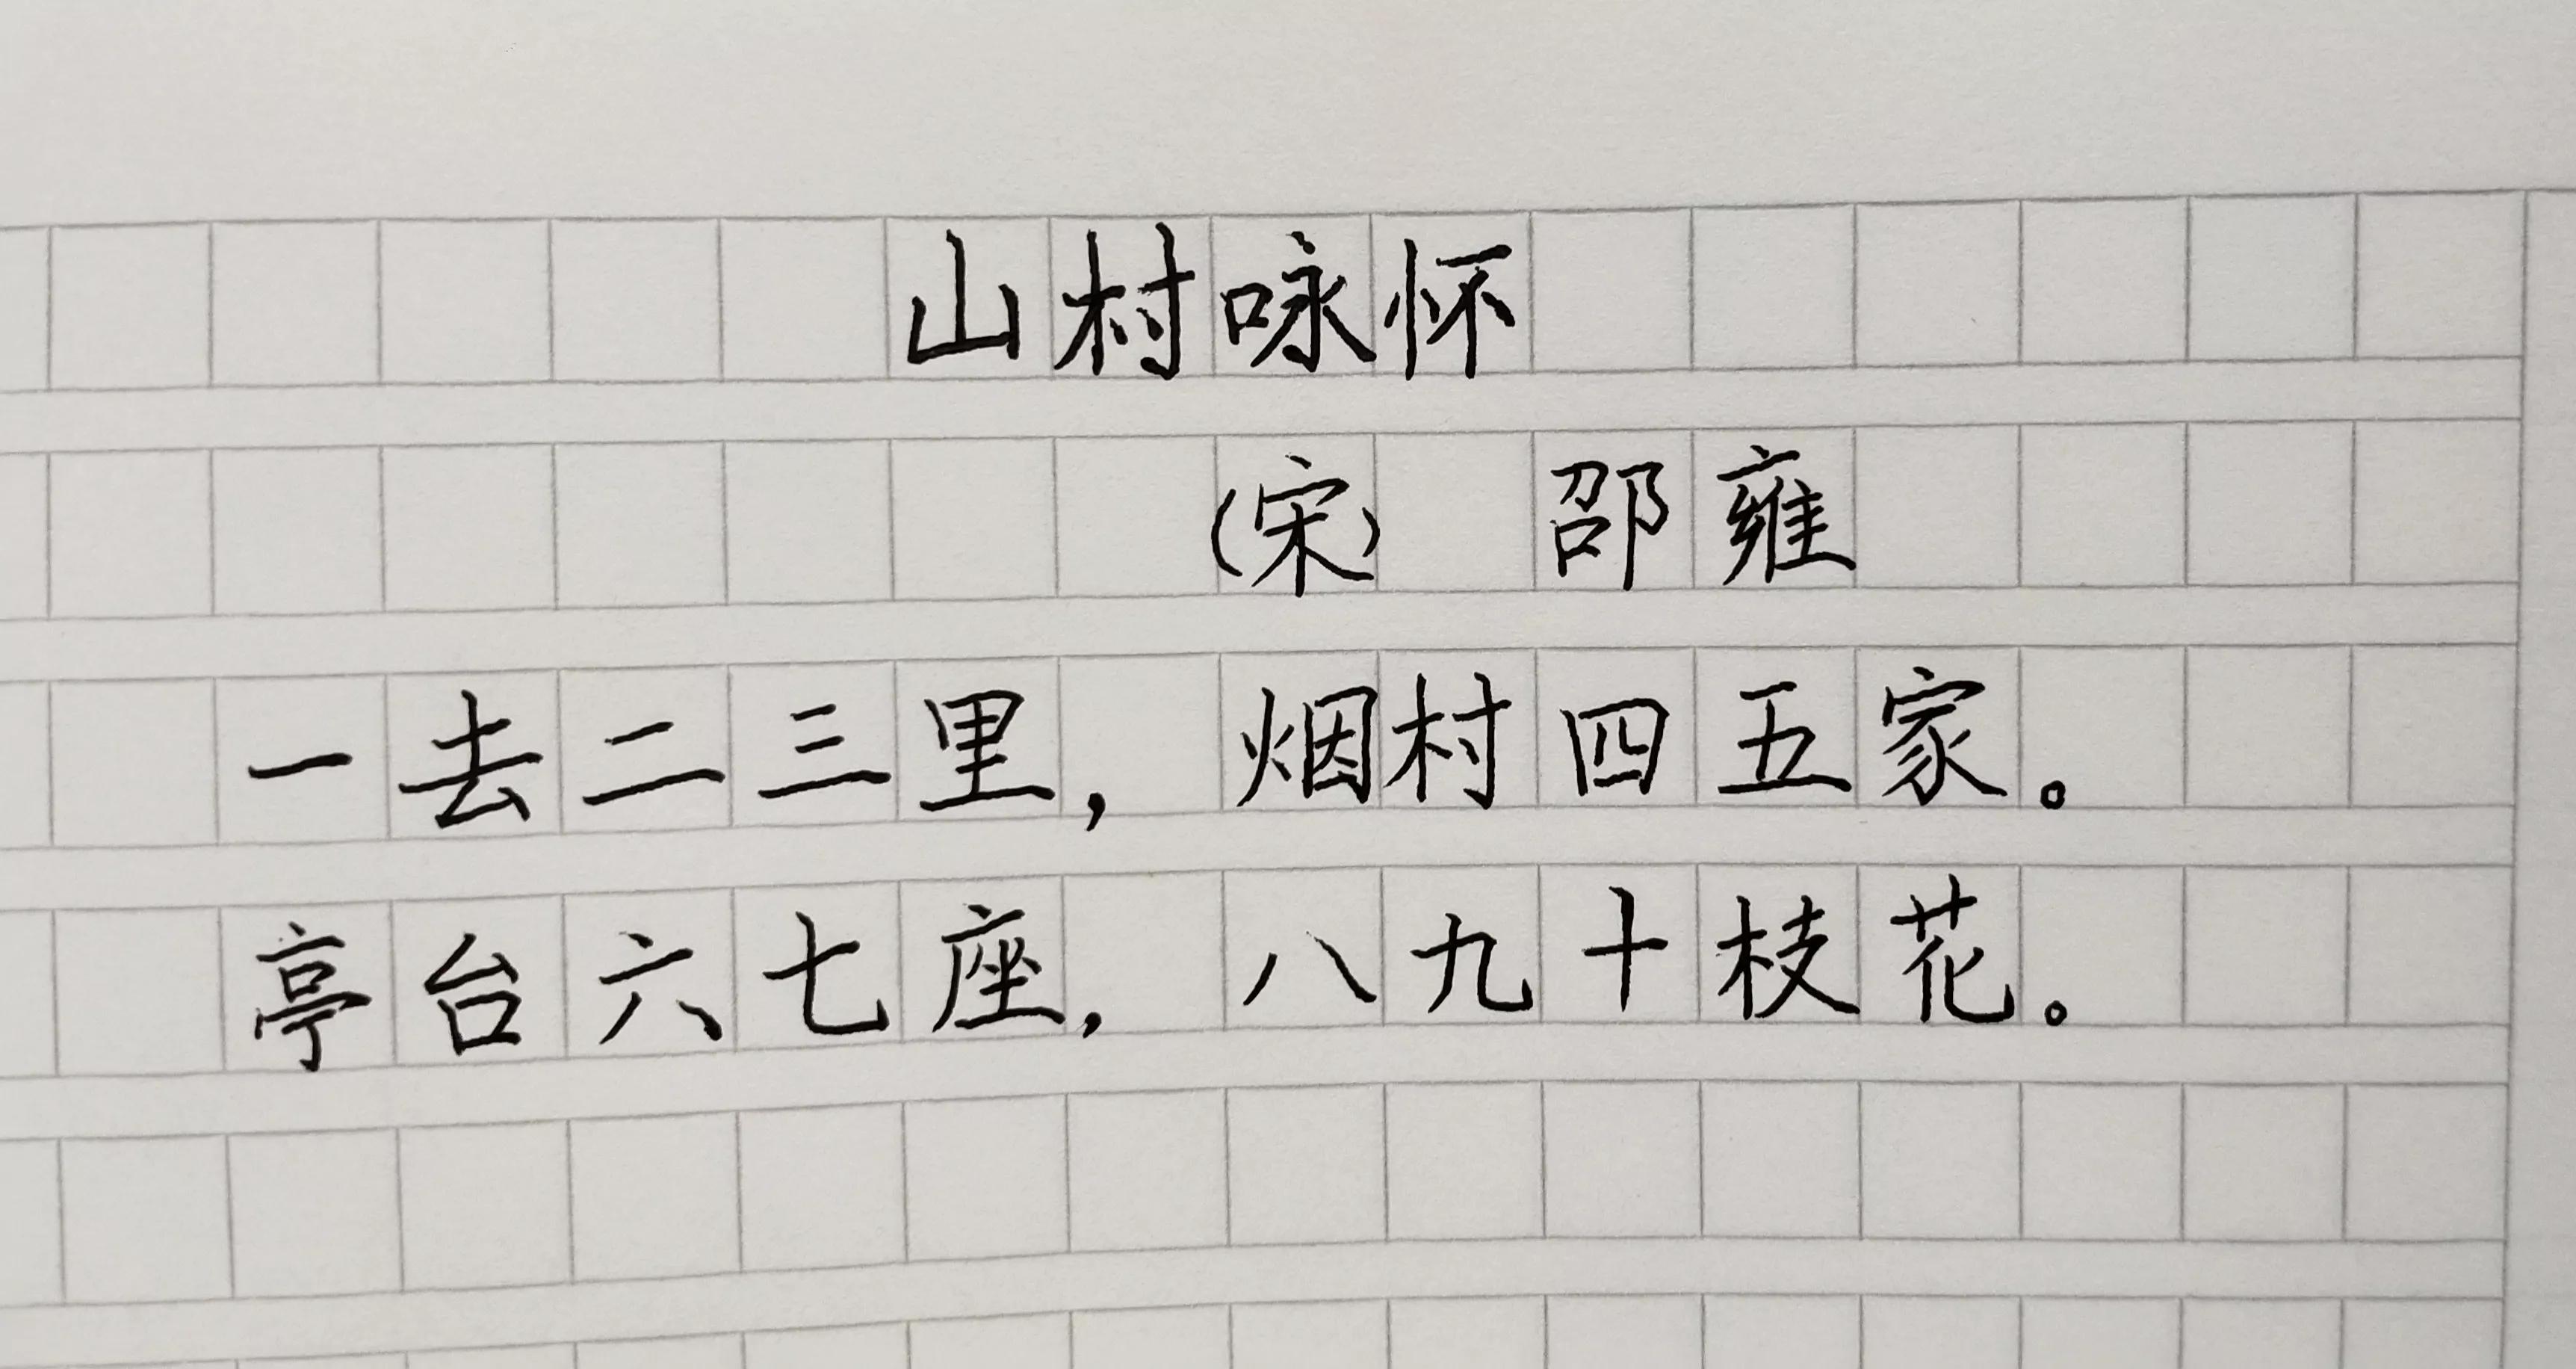 山村咏怀
(宋) 邵雍
一去二三里，烟村四五家。
亭台六七座，八九十枝花。